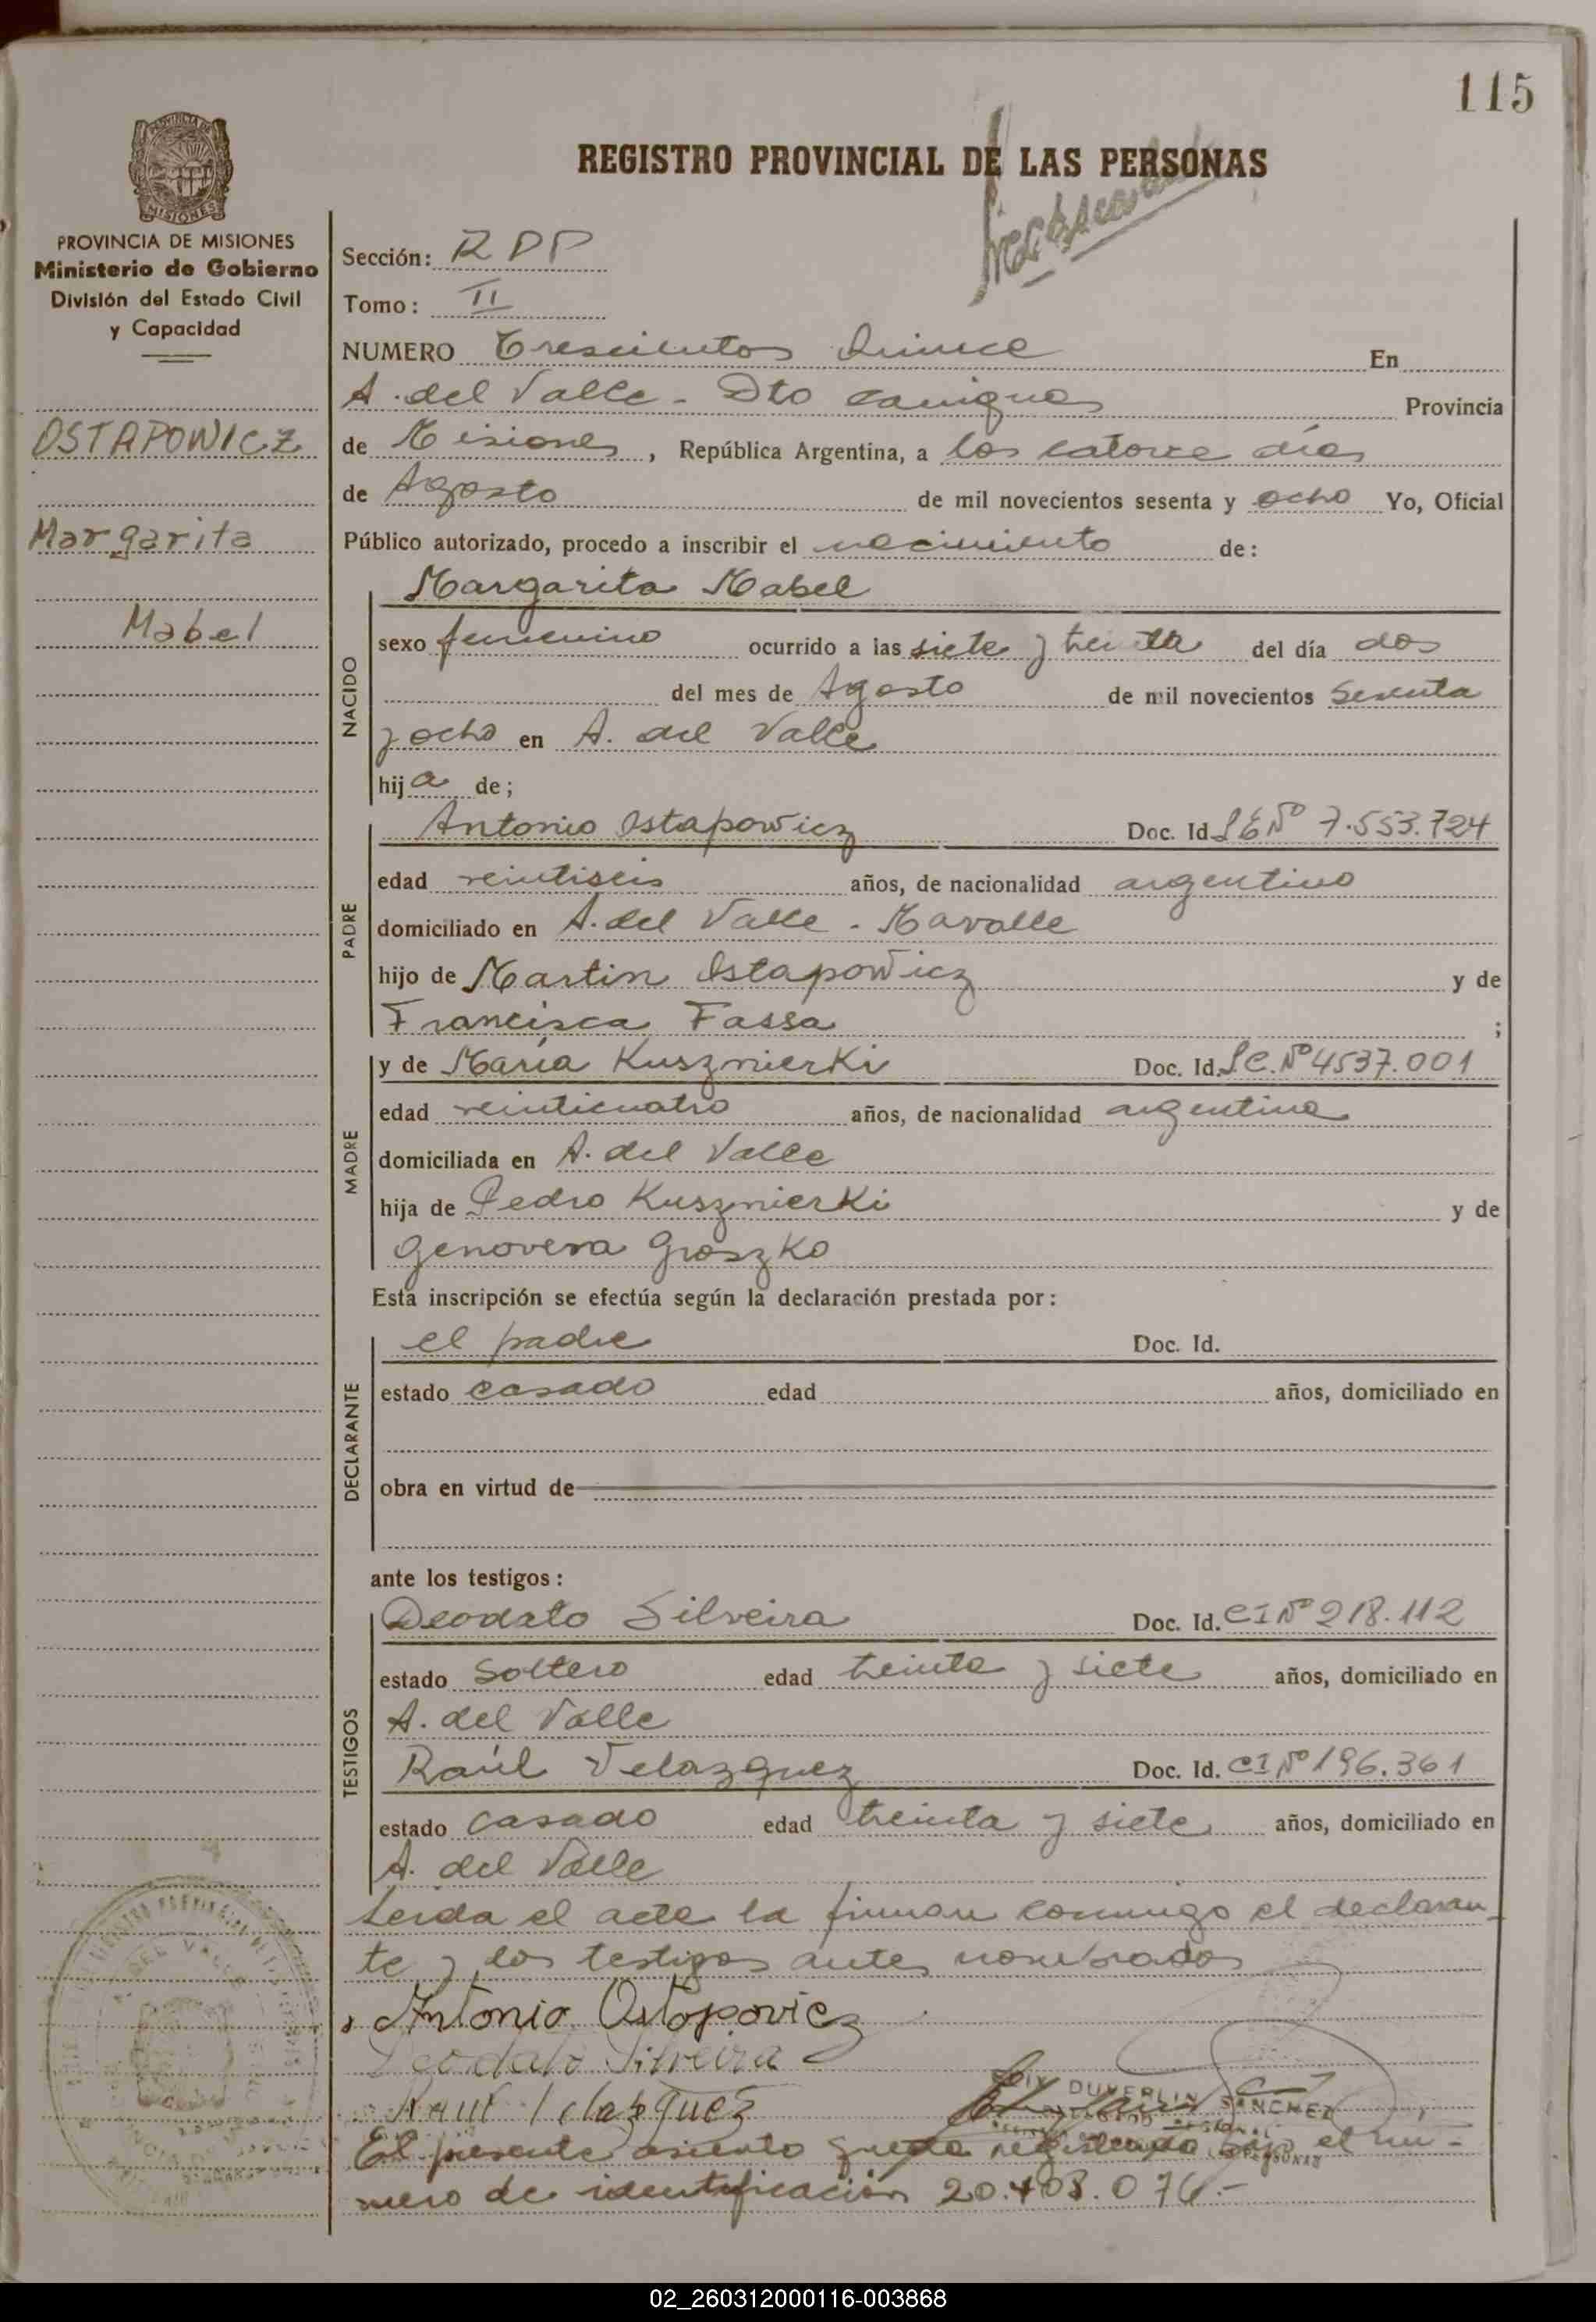 115
REGISTRO PROVINCIAL DE LAS PERSONAS
MISIONES
PROVINCIA DE MISIONES
Ministerio de Gobierno
División del Estado Civil
y Capacidad
OSTAPOWICZ
Margarita
Mabel
Sección: RPP
Tomo: II
NUMERO Trescientos Quince En
A. del Valle - Dto Cainguas Provincia
de Misiones, República Argentina, a los catorce días
de Agosto de mil novecientos sesenta y ocho Yo, Oficial
Público autorizado, procedo a inscribir el nacimiento de:
NACIDO
Margarita Mabel
sexo femenino ocurrido a las siete y treinta del día dos
del mes de Agosto de mil novecientos Sesenta
y ocho en A. del Valle
hija de;
PADRE
Antonio Ostapowicz Doc. Id LE Nº 7.553.724
edad veintiseis años, de nacionalidad argentino
domiciliado en A. del Valle - Mavalle
hijo de Martin Ostapowicz y de
Francisca Fassa ;
MADRE
y de María Kuszmierki Doc. Id. LC. Nº 4537.001
edad veinticuatro años, de nacionalidad argentina
domiciliada en A. del Valle
hija de Pedro Kuszmierki y de
Genoveva Groszko
Esta inscripción se efectúa según la declaración prestada por:
DECLARANTE
el padre Doc. Id.
estado casado edad años, domiciliado en
obra en virtud de
ante los testigos:
TESTIGOS
Deodato Silveira Doc. Id. CI Nº 218.112
estado Soltero edad treinta y siete años, domiciliado en
A. del Valle
Raúl Velazquez Doc. Id. CI Nº 196.361
estado casado edad treinta y siete años, domiciliado en
A. del Valle
Leida el acta la firman conmigo el declaran-
te y los testigos antes nombrados
Antonio Ostapovicz
Deodato Silveira
Raul Velazquez
DUVERLIN SANCHEZ
El presente asiento queda registrado bajo el nú-
mero de identificación
02_260312000116-003868